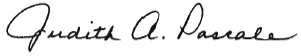 Judith A. Pascale